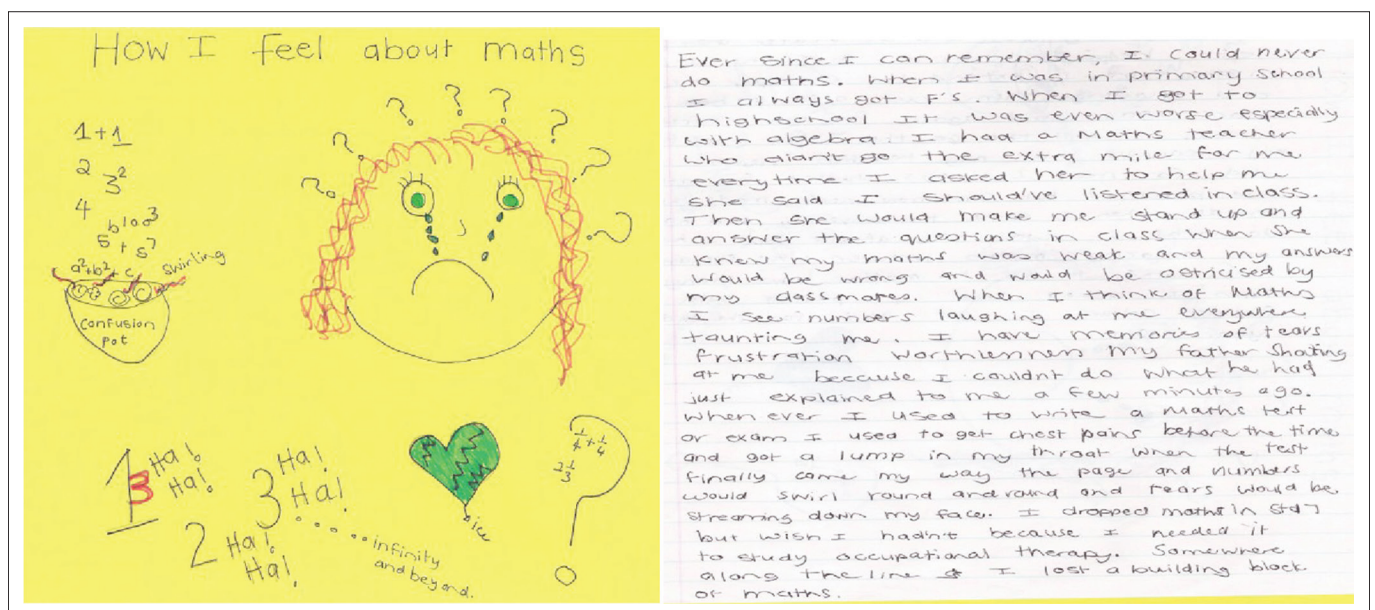 How I feel about maths
1+1
2 3²
4
b100³
5 + 5⁷
a²+b²+c
swirling
confusion
pot
? ? ? ? ? ? ? ?
1 3 Ha!
Ha!
2 Ha!
Ha!
3 Ha!
Ha!
.....infinity
and beyond.
ice
1/4 + 1/4
2 1/3
?
Ever since I can remember, I could never
do maths. When I was in primary school
I always got F's. When I got to
highschool It was even worse especially
with algebra. I had a Maths teacher
who didn't go the extra mile for me
everytime I asked her to help me
she said I should've listened in class.
Then she would make me stand up and
answer the questions in class when she
knew my maths was weak and my answers
would be wrong and would be ostricised by
my classmates. When I think of Maths
I see numbers laughing at me everywhere
taunting me. I have memories of tears
frustration worthlenness my father shouting
at me because I couldnt do what he had
just explained to me a few minutes ago.
When ever I used to write a maths test
or exam I used to get chest pains before the time
and got a lump in my throat when the test
finally came my way the page and numbers
would swirl round and round and tears would be
streaming down my face. I dropped maths in std 7
but wish I hadn't because I needed it
to study occupational therapy. Somewhere
along the line I lost a building block
of maths.